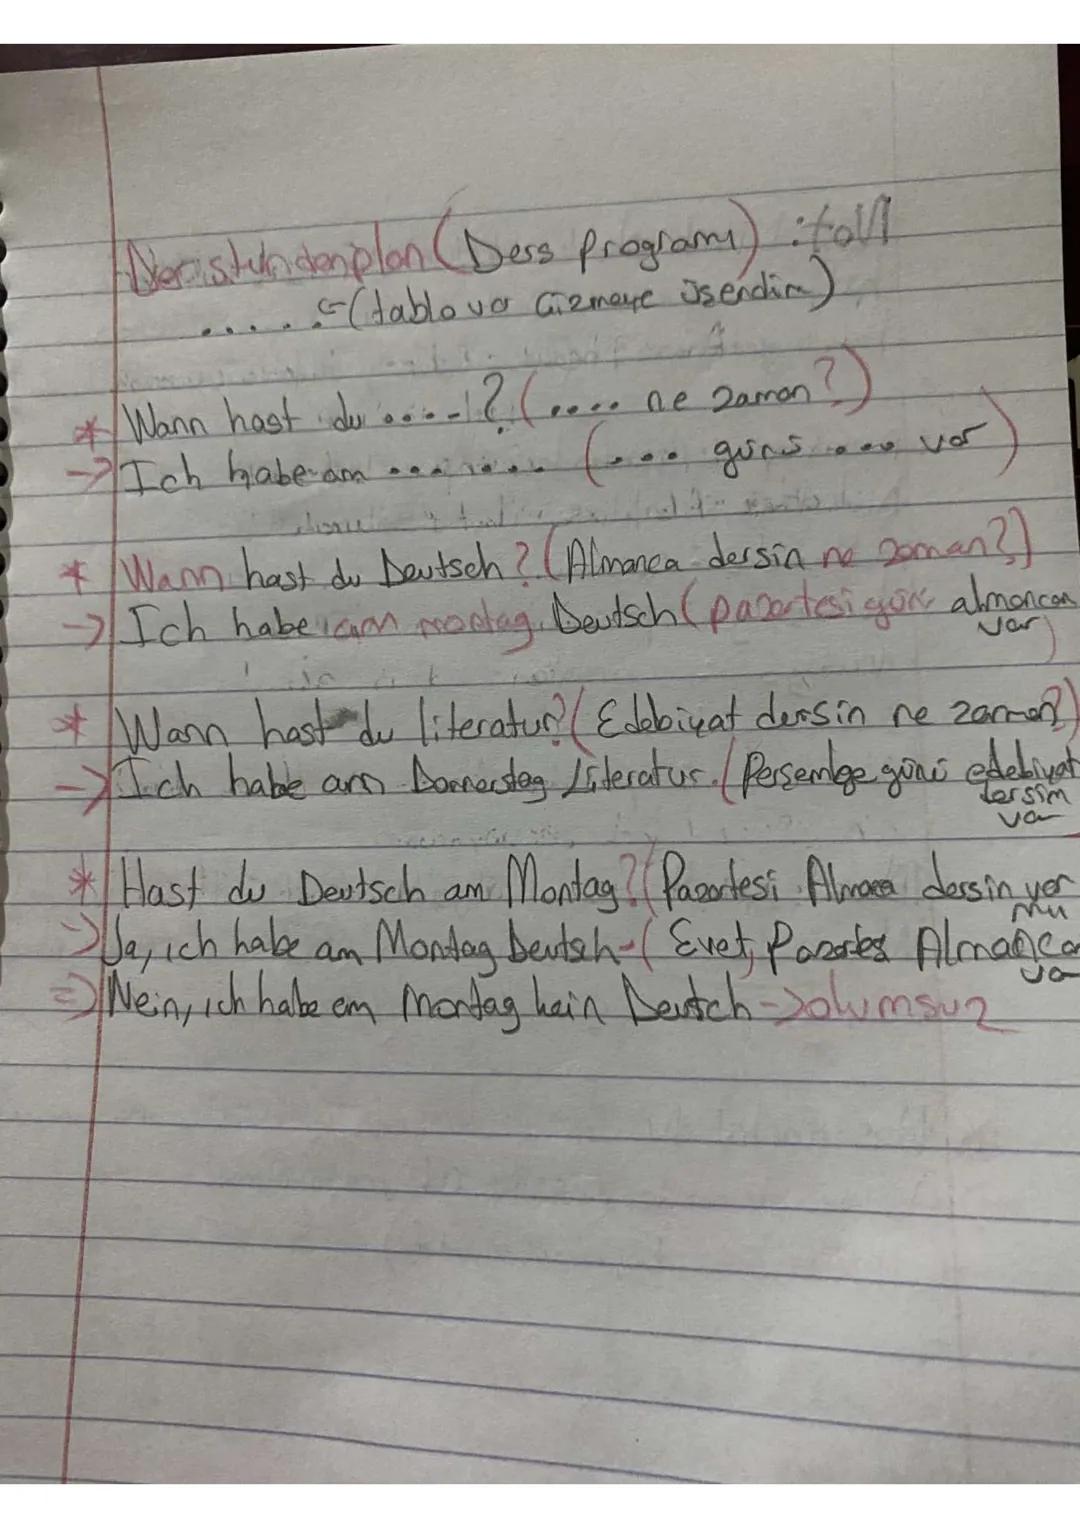 Der stundenplan (Ders programı) :toll
..... ⇐(tablo var Çizmeye üşendim)
* Wann hast du .....? (.... ne zaman?)
→ Ich habe am ........ (... günü ... var)
* Wann hast du Deutsch? (Almanca dersin ne zaman?)
→ Ich habe am montag Deutsch (pazartesi günü almancam
var)
* Wann hast du literatur? (Edebiyat dersin ne zaman?)
→ Ich habe am Donnerstag Literatur. (Perşembe günü edebiyat
dersim
va
* Hast du Deutsch am Montag? (Pazartesi Almanca dersin var
mu
→ Ja, ich habe am Montag Deutsh- (Evet, Pazartes Almanca
va
⇒ Nein, ich habe am Montag kein Deutch → olumsuz